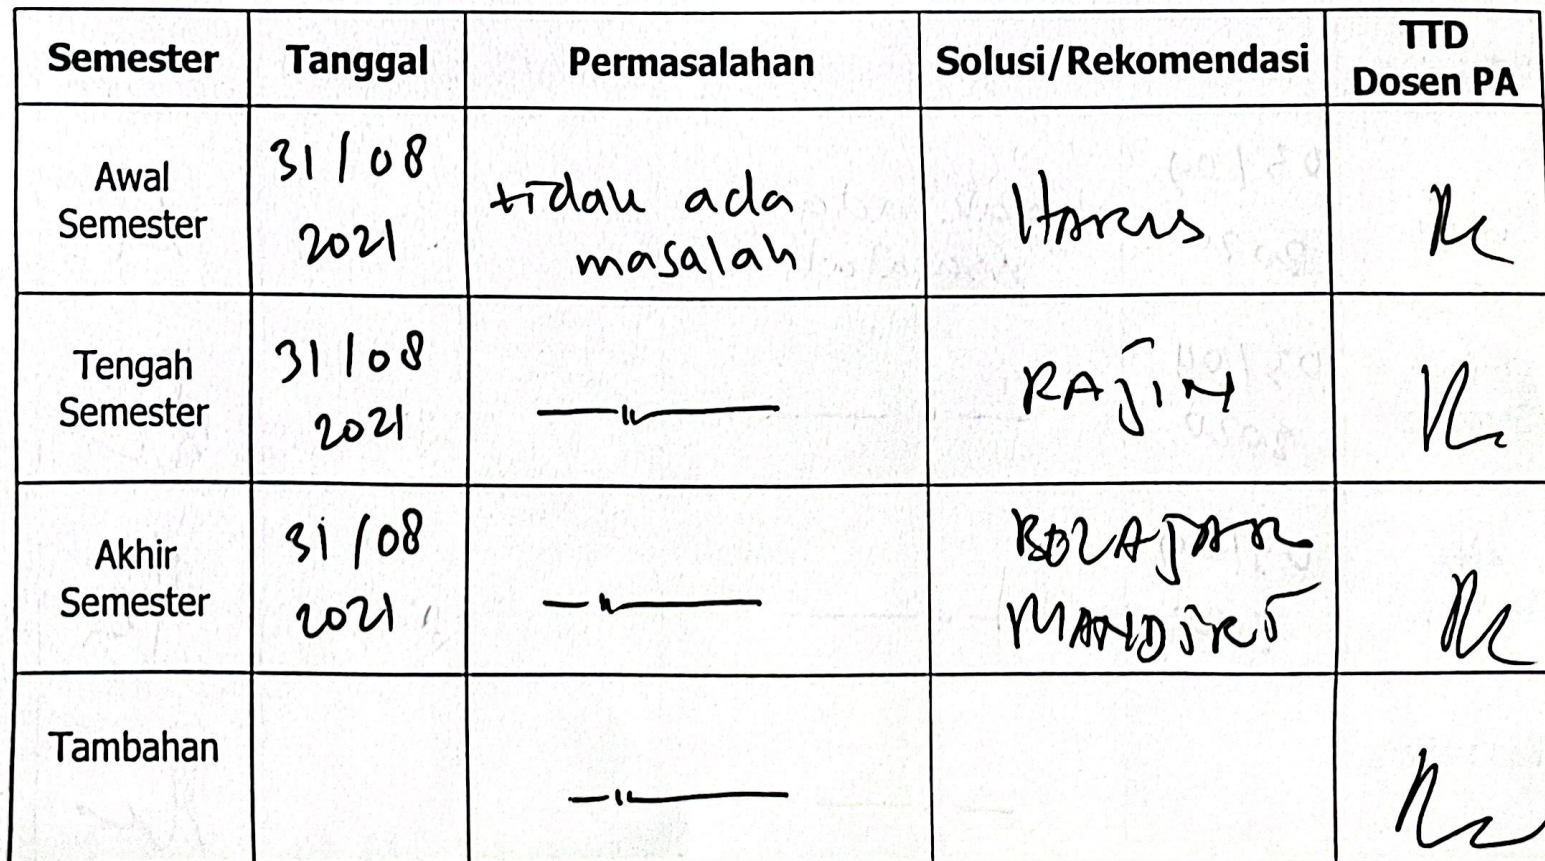 Semester Tanggal Permasalahan Solusi/Rekomendasi TTD Dosen PA
Awal Semester 31/08 2021 tidak ada masalah Harus
Tengah Semester 31/08 2021 —〃— RAJIN
Akhir Semester 31/08 2021 —〃— BELAJAR MANDIRI
Tambahan —〃—